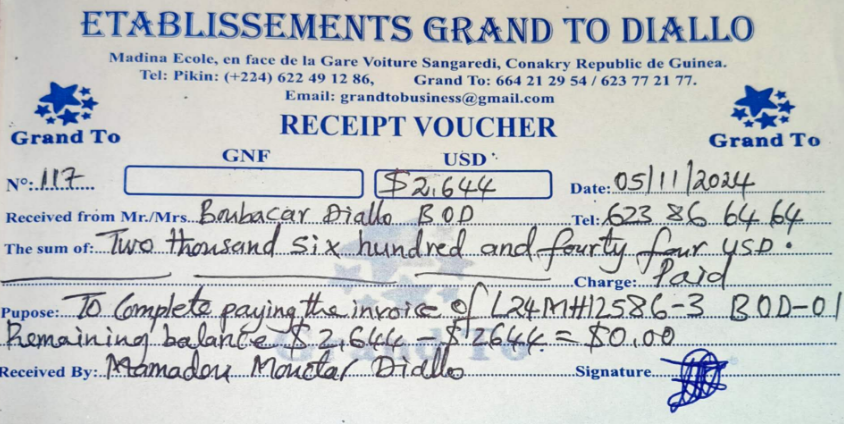 ETABLISSEMENTS GRAND TO DIALLO
Madina Ecole, en face de la Gare Voiture Sangaredi, Conakry Republic de Guinea.
Tel: Pikin: (+224) 622 49 12 86, Grand To: 664 21 29 54 / 623 77 21 77.
Email: grandtobusiness@gmail.com
Grand To
RECEIPT VOUCHER
Grand To
GNF USD
Nº:.117 $2,644 Date: 05/11/2024
Received from Mr./Mrs. Boubacar Diallo BOD Tel: 623 86 64 64
The sum of: Two thousand six hundred and fourty four USD.
Charge: Paid
Pupose: To Complete paying the invoice of L24MH12586-3 BOD-01
Remaining balance $2,644 - $2644 = $0.00
Grand To
Received By: Mamadou Mouctar Diallo Signature